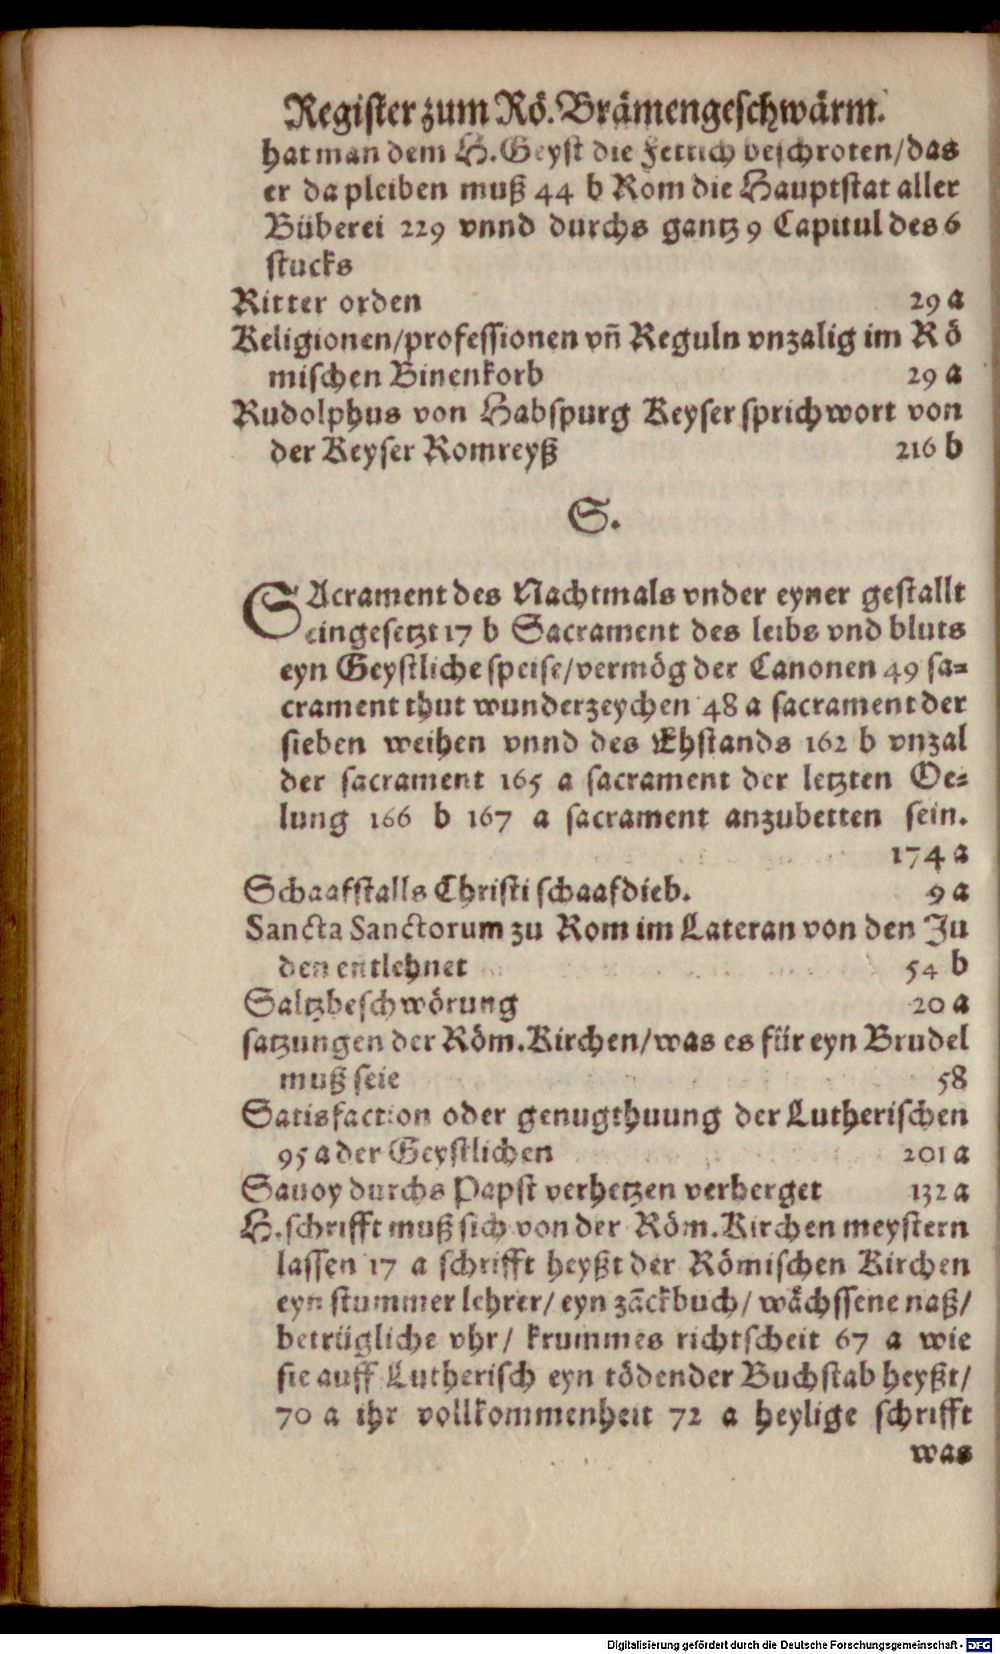 Register zum Rö. Brämengeschwärm.
hat man dem H. Geyst die Fettich beschroten/das
er da pleiben muß 44 b Rom die Hauptstat aller
Büberei 229 vnnd durchs gantz 9 Capitul des 6
stucks
Ritter orden 29 a
Religionen/professionen vñ Reguln vnzalig im Rö
mischen Binenkorb 29 a
Rudolphus von Habspurg Keyser sprichwort von
der Keyser Romreyß 216 b
S.
SAcrament des Nachtmals vnder eyner gestallt
eingesetzt 17 b Sacrament des leibs vnd bluts
eyn Geystliche speise/vermög der Canonen 49 sa=
crament thut wunderzeychen 48 a sacrament der
sieben weihen vnnd des Ehstands 162 b vnzal
der sacrament 165 a sacrament der letzten Oe=
lung 166 b 167 a sacrament anzubetten sein.
174 a
Schaafstalls Christi schaafdieb. 9 a
Sancta Sanctorum zu Rom im Lateran von den Ju
den entlehnet 54 b
Saltzbeschwörung 20 a
satzungen der Röm. Kirchen/was es für eyn Brudel
muß seie 58
Satisfaction oder genugthuung der Lutherischen
95 a der Geystlichen 201 a
Sauoy durchs Papst verhetzen verherget 132 a
H. schrifft muß sich von der Röm. Kirchen meystern
lassen 17 a schrifft heyßt der Römischen Kirchen
eyn stummer lehrer/ eyn zãckbuch/ wächssene naß/
betrügliche vhr/ krummes richtscheit 67 a wie
sie auff Lutherisch eyn tödender Buchstab heyßt/
70 a ihr vollkommenheit 72 a heylige schrifft
was
Digitalisierung gefördert durch die Deutsche Forschungsgemeinschaft - DFG